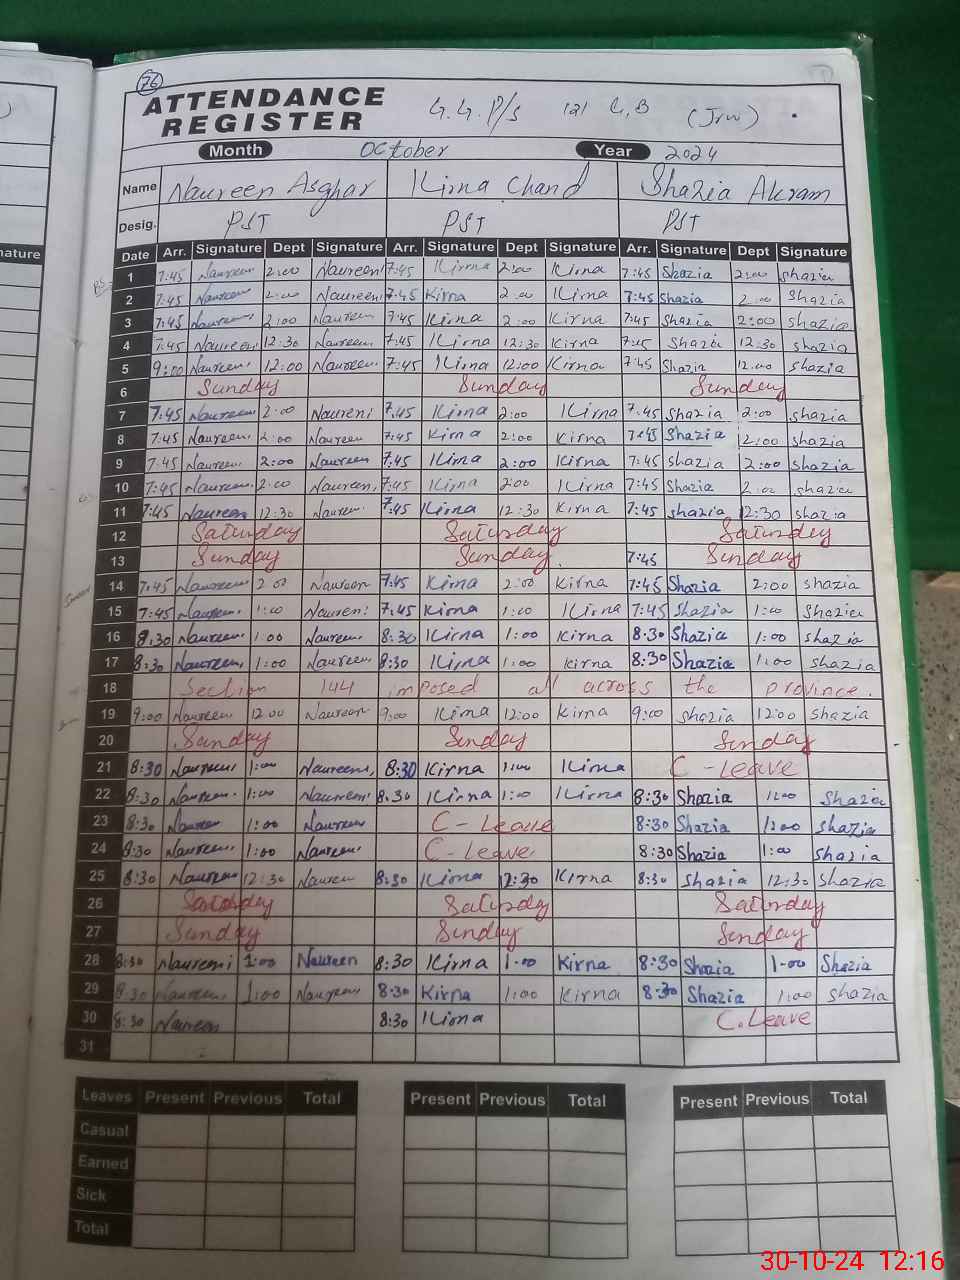 76
ATTENDANCE
REGISTER
G.G.P/S 121 G,B (Jrw)
Month October Year 2024
Name Naureen Asghar Kirna Chand Shazia Akram
Desig. PST PST PST
ature
Date Arr. Signature Dept Signature Arr. Signature Dept Signature Arr. Signature Dept Signature
1 7:45 Naureen 2:00 Naureen 7:45 Kirna 2:00 Kirna 7:45 Shazia 2:00 shazia
2 7:45 Naureen 2:00 Naureen 7:45 Kirna 2:00 Kirna 7:45 Shazia 2:00 shazia
3 7:45 Naureen 2:00 Naureen 7:45 Kirna 2:00 Kirna 7:45 Shazia 2:00 shazia
4 7:45 Naureen 12:30 Naureen 7:45 Kirna 12:30 Kirna 7:45 Shazia 12:30 shazia
5 9:00 Naureen 12:00 Naureen 7:45 Kirna 12:00 Kirna 7:45 Shazia 12:00 shazia
6 Sunday Sunday Sunday
7 7:45 Naureen 2:00 Naureen 7:45 Kirna 2:00 Kirna 7:45 Shazia 2:00 shazia
8 7:45 Naureen 2:00 Naureen 7:45 Kirna 2:00 Kirna 7:45 Shazia 2:00 shazia
9 7:45 Naureen 2:00 Naureen 7:45 Kirna 2:00 Kirna 7:45 shazia 2:00 shazia
10 7:45 Naureen 2:00 Naureen 7:45 Kirna 2:00 Kirna 7:45 Shazia 2:00 shazia
11 7:45 Naureen 12:30 Naureen 7:45 Kirna 12:30 Kirna 7:45 shazia 12:30 shazia
12 Saturday Saturday Saturday
13 Sunday Sunday 7:45 Sunday
14 7:45 Naureen 2:00 Naureen 7:45 Kirna 2:00 Kirna 7:45 Shazia 2:00 shazia
15 7:45 Naureen 1:00 Naureen 7:45 Kirna 1:00 Kirna 7:45 Shazia 1:00 Shazia
16 8:30 Naureen 1:00 Naureen 8:30 Kirna 1:00 Kirna 8:30 Shazia 1:00 shazia
17 8:30 Naureen 1:00 Naureen 8:30 Kirna 1:00 Kirna 8:30 Shazia 1:00 shazia
18 Section 144 imposed all across the province.
19 9:00 Naureen 12:00 Naureen 9:00 Kirna 12:00 Kirna 9:00 shazia 12:00 shazia
20 Sunday Sunday Sunday
21 8:30 Naureen 1:00 Naureen 8:30 Kirna 1:00 Kirna C-Leave
22 8:30 Naureen 1:00 Naureen 8:30 Kirna 1:00 Kirna 8:30 Shazia 1:00 Shazia
23 8:30 Naureen 1:00 Naureen C-Leave 8:30 Shazia 1:00 shazia
24 8:30 Naureen 1:00 Naureen C-Leave 8:30 Shazia 1:00 shazia
25 8:30 Naureen 12:30 Naureen 8:30 Kirna 12:30 Kirna 8:30 Shazia 12:30 Shazia
26 Saturday Saturday Saturday
27 Sunday Sunday Sunday
28 8:30 Naureen 1:00 Naureen 8:30 Kirna 1:00 Kirna 8:30 Shazia 1:00 Shazia
29 8:30 Naureen 1:00 Naureen 8:30 Kirna 1:00 Kirna 8:30 Shazia 1:00 shazia
30 8:30 Naureen 8:30 Kirna C.Leave
31
Leaves Present Previous Total Present Previous Total Present Previous Total
Casual
Earned
Sick
Total
30-10-24 12:16